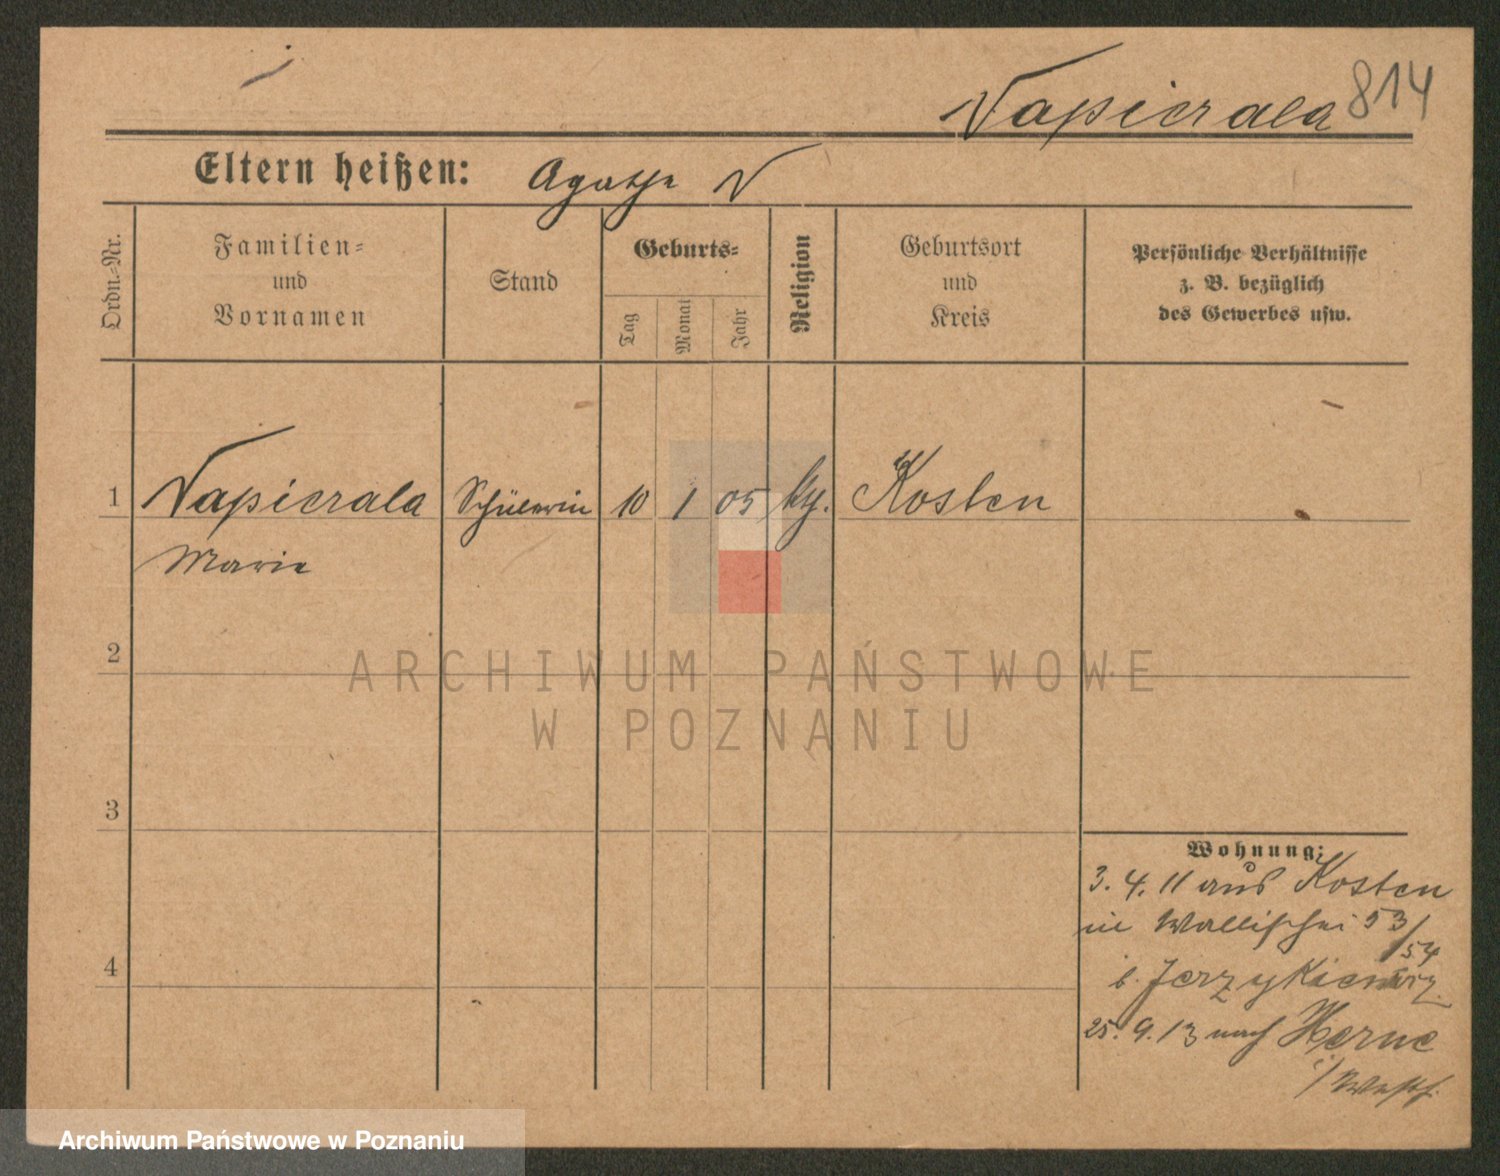 Napierala 814
Eltern heißen: Agathe N
Ordn.=Nr.
Familien=
und
Vornamen
Stand
Geburts=
Tag
Monat
Jahr
Religion
Geburtsort
und
Kreis
Persönliche Verhältnisse
z. B. bezüglich
des Gewerbes usw.
1 Napierala Schülerin 10 1 05 kth. Kosten
Marie
2
ARCHIWUM PAŃSTWOWE
W POZNANIU
3
Wohnung:
3. 4. 11 aus Kosten
in Wallischei 53/54
4
b. Jerzykiewicz
25. 9. 13 nach Herne
i/Westf.
Archiwum Państwowe w Poznaniu